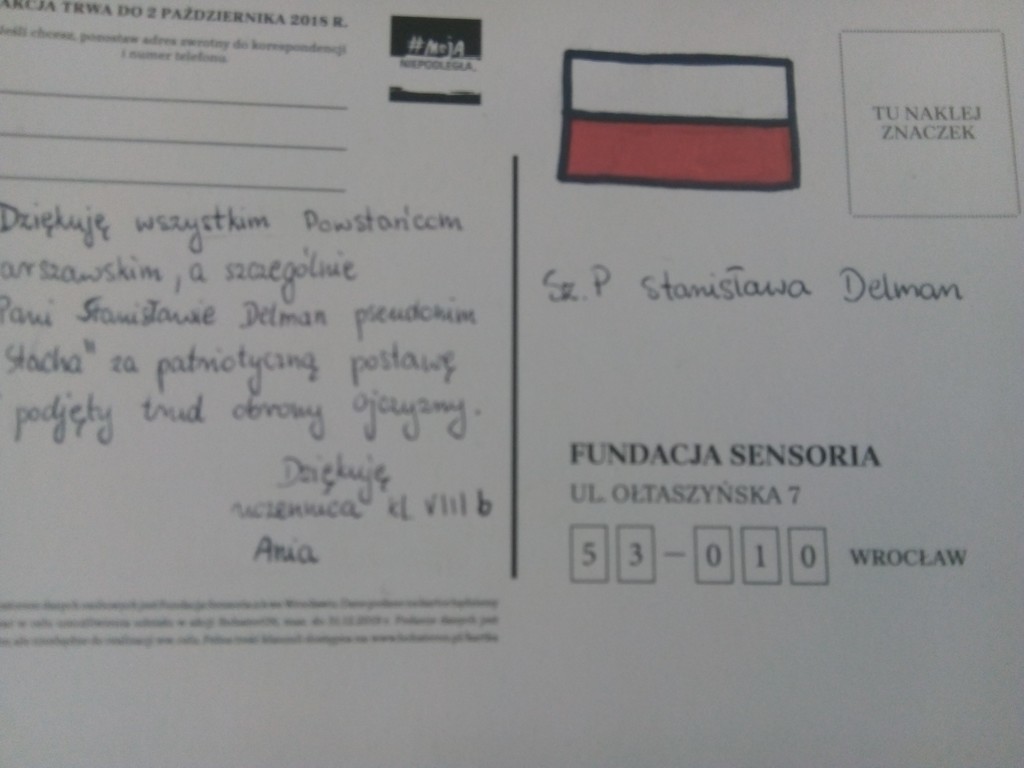 AKCJA TRWA DO 2 PAŹDZIERNIKA 2018 R.
Jeśli chcesz, pozostaw adres zwrotny do korespondencji
i numer telefonu
#MOJA
NIEPODLEGŁA
TU NAKLEJ
ZNACZEK
Dziękuję wszystkim Powstańcom
arszawskim, a szczególnie
Pani Stanisławie Delman pseudonim
Stacha" za patriotyczną postawę
podjęty trud obrony Ojczyzny.
Dziękuję
uczennica kl VIII b
Ania
Sz. P Stanisława Delman
FUNDACJA SENSORIA
UL. OŁTASZYŃSKA 7
53-010 WROCŁAW